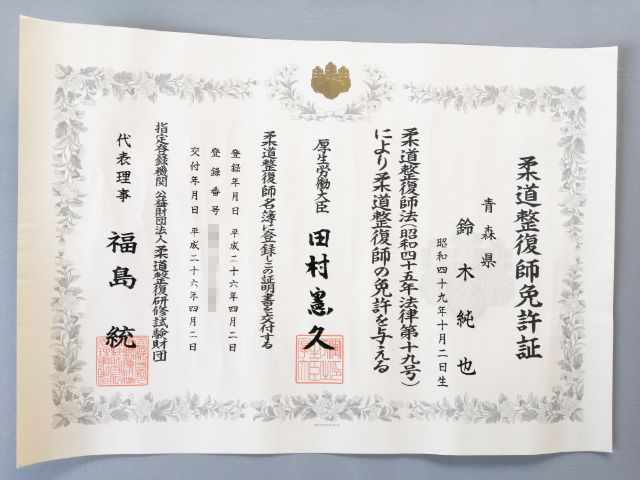 柔道整復師免許証
青森県
鈴木純也
昭和四十九年十月二日生
柔道整復師法(昭和四十五年法律第十九号)
により柔道整復師の免許を与える
厚生労働大臣 田村憲久
柔道整復師名簿に登録しこの証明書を交付する
登録年月日 平成二十六年四月二日
登録番号
交付年月日 平成二十六年四月二日
指定登録機関 公益財団法人柔道整復研修試験財団
代表理事 福島統